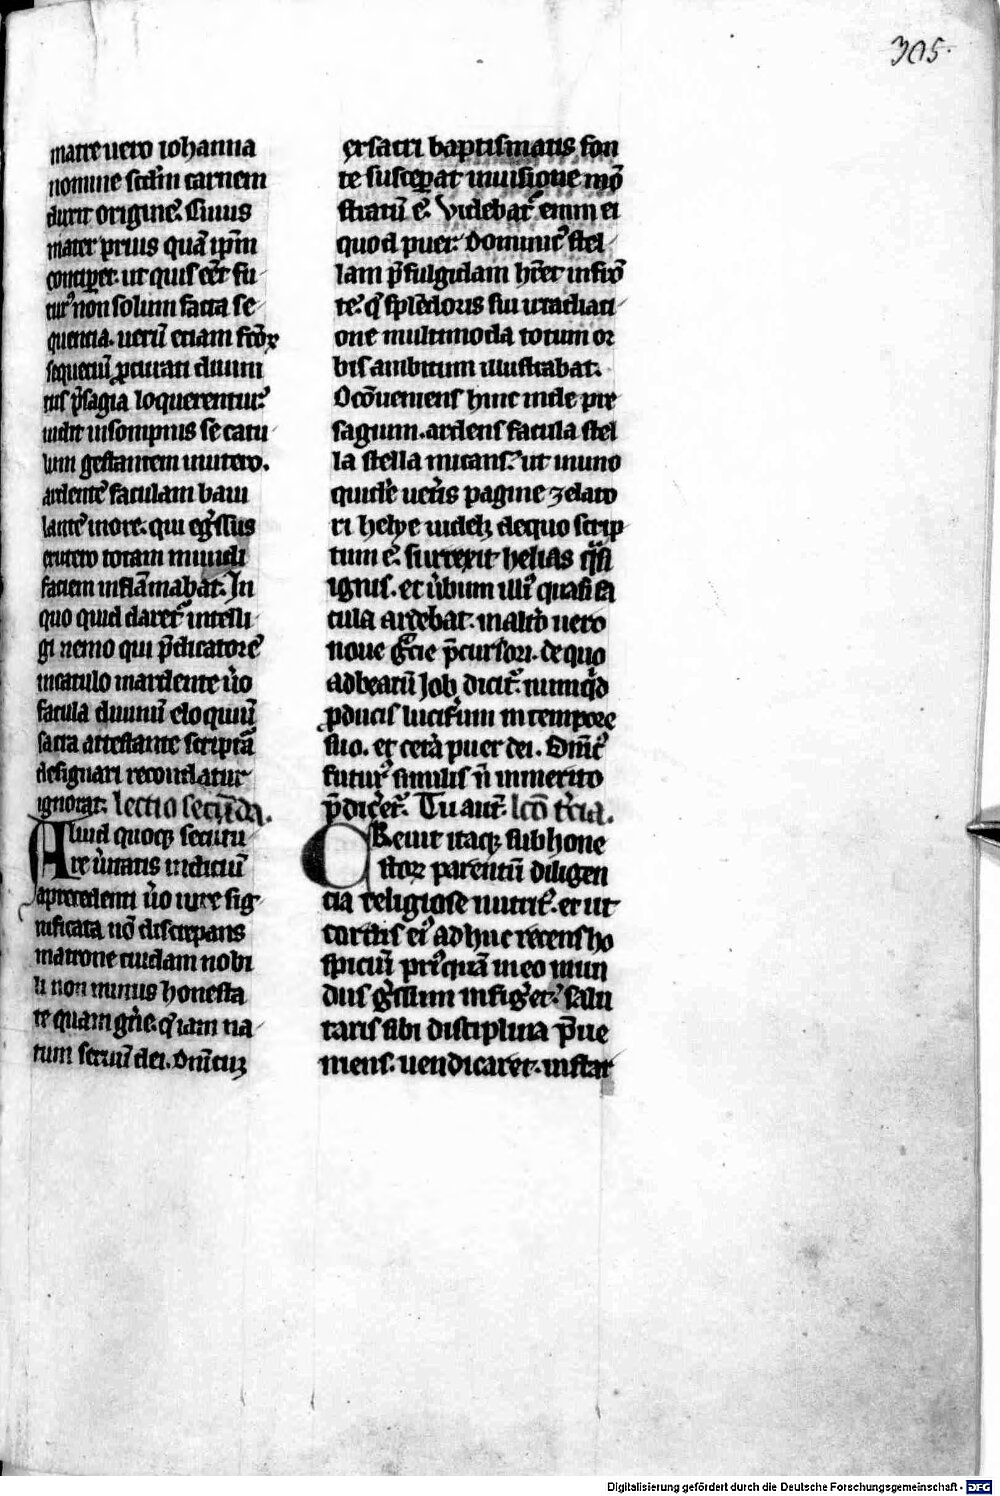 305.
matre uero iohanna
nomine scd̄m carnem
duxit origine᷒. Cuius
mater prius quā ip̄m
conciꝑet. ut quis eēt fu
tur᷒ non solum facta se
quentia. uerū etiam scōꝝ
sequentiū ꝓcurati diuini
tus p̄sagia loquerentur᷒
uidit insompnis se catu
lum gestantem inutero.
ardentē faculam baiu
lantē inore. qui egr̄ssus
exutero totam mundi
faciem inflāmabat. In
quo quid daret᷒ intelli
gi nemo qui p̄dicatorē
incatulo inardente u̇o
facula diuinū eloquiū
sacra attestante scriptᷓa
designari recondatur
ignorat. Lectio secūda.
Aliud quoqꝫ secutu
re u̇itatis indiciū
aprecedenti u̇o iure sig
nificata nō discrepans
matrone cuidam nobi
li non minus honesta
te quam gn̄e. q̇ iam na
tum seruū dei. Dn̄icuꝫ
exsacri baptismatis fon
te susceꝑat inuisione mō
stratū ē. Videbat᷒ enim ei
quod puer. Dominic᷒ stel
lam p̄fulgidam hr̄et infrō
te. q̄ splēdoris sui irradiati
one multimoda totum or
bis ambitum illustrabat.
O cōueniens hinc inde pre
sagium. ardens facula stel
la stella micans. ut inuno
quidē uet̄is pagine zelato
ri helye uidelꝫ dequo scrip
tum ē. surrexit helias q̄si
ignis. et u̇bum illi᷒ quasi fa
cula ardebat. inalt̄o uero
noue gr̄cie p̄cursori. de quo
ad beatū Iob dicit᷒. numq̇d
ꝓducis lucifr̄um intempore
suo. et cet̄a puer dei. Dn̄ic᷒
futur᷒ similis n̄ inmerito
p̄dicer̄et᷒. Tu aut̄. lcō t̄cia.
Creuit itaqꝫ sub hone
stoꝝ parentū diligen
cia religiose nutrit᷒. et ut
cordis ei᷒ ad huc recens ho
spiciū pri᷒quā ineo mun
dus gr̄ssum infigr̄et. salu
taris sibi disciplina p̄ue
niens. uendicaret. instar
Digitalisierung gefördert durch die Deutsche Forschungsgemeinschaft - DFG